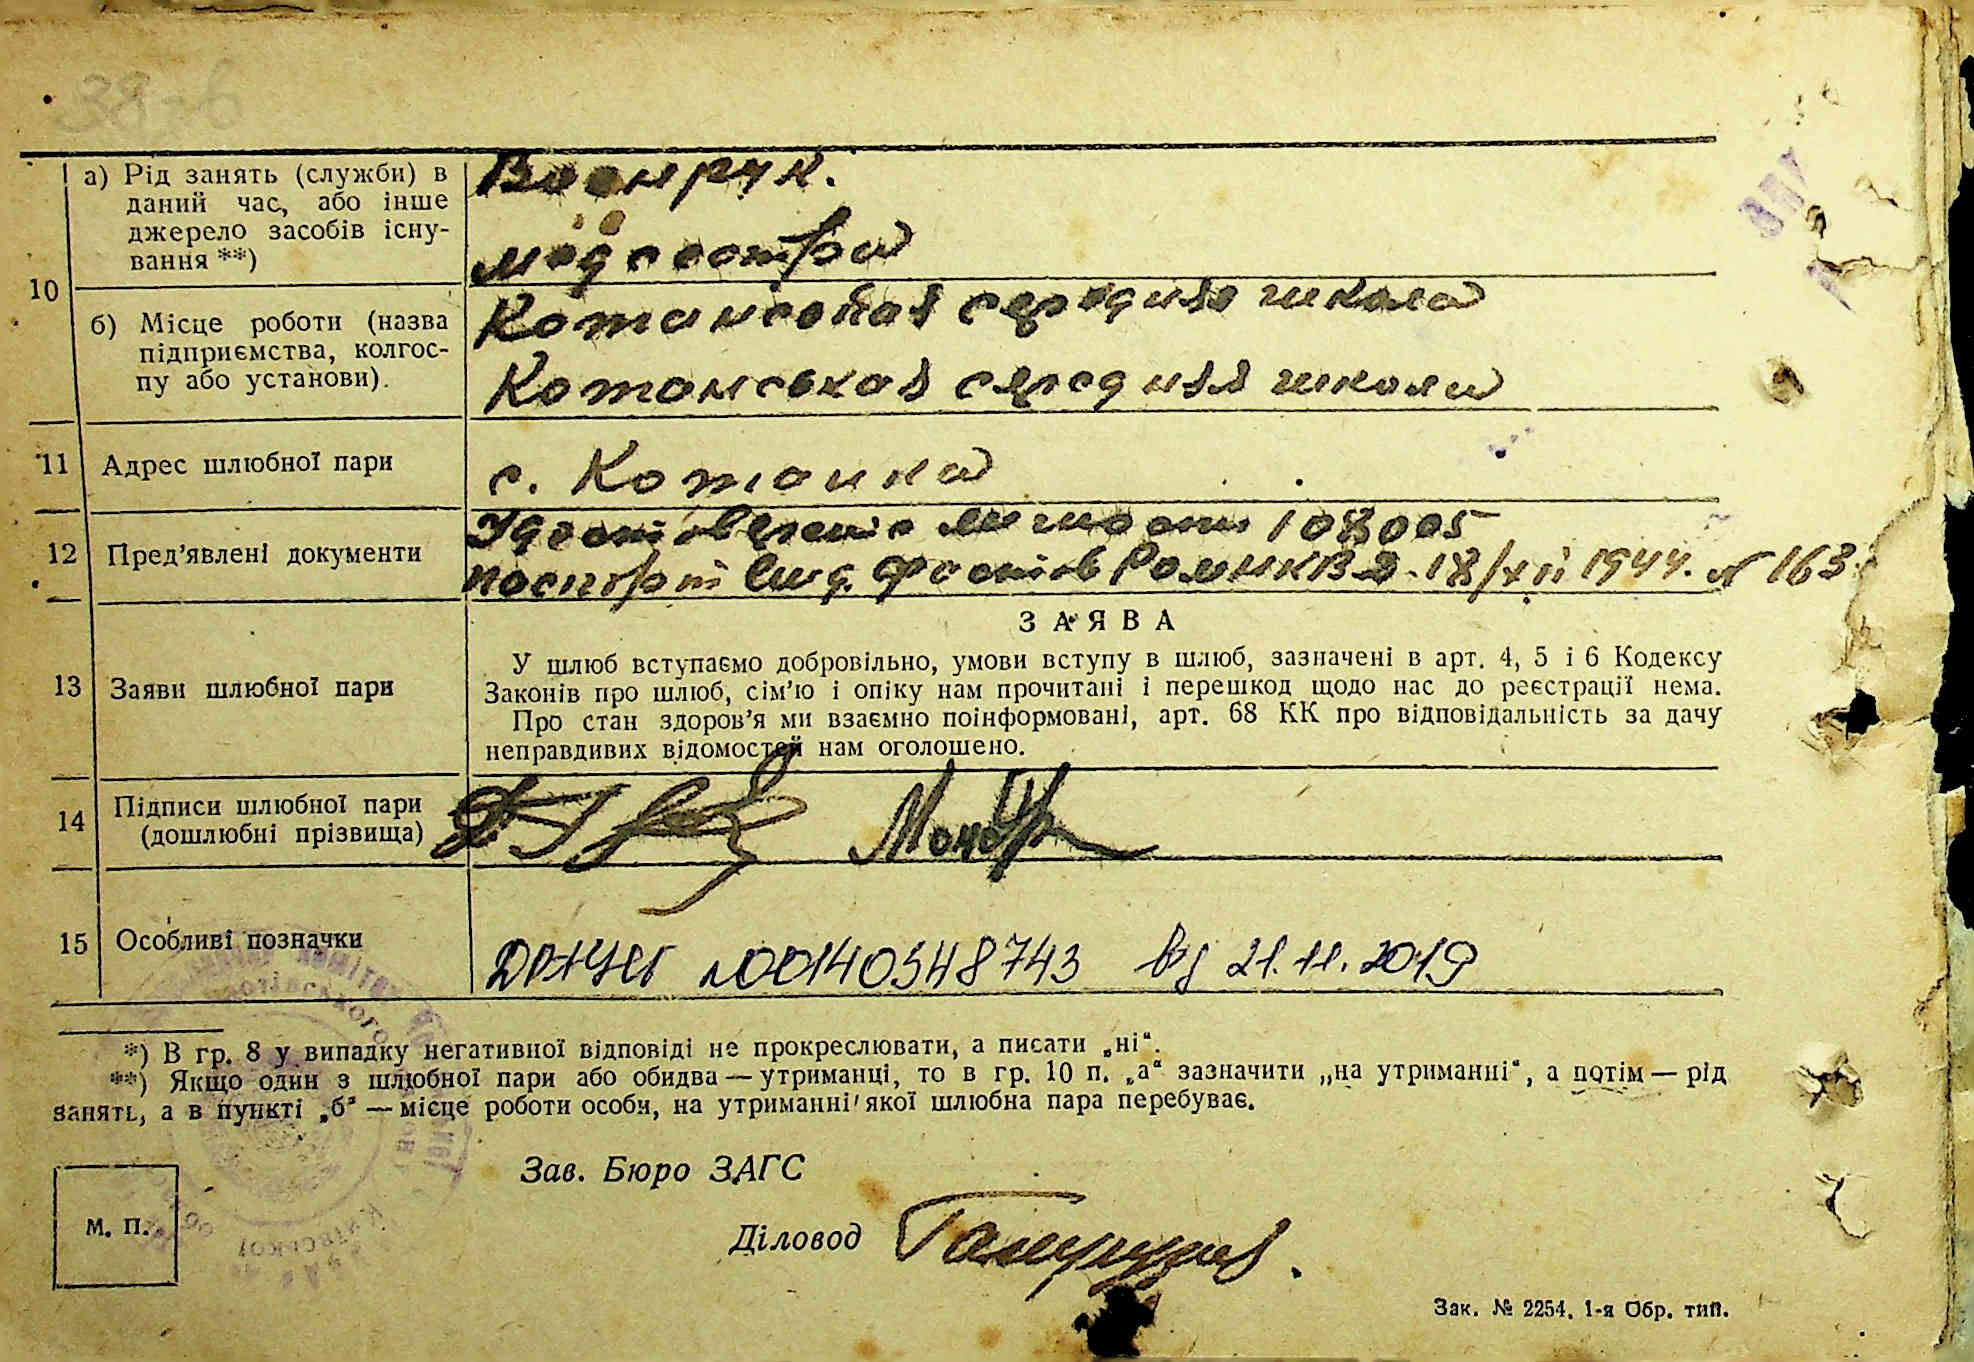 10
а) Рід занять (служби) в
даний час, або інше
джерело засобів існу-
вання **)
Военрук.
медсестра
б) Місце роботи (назва
підприємства, колгос-
пу або установи).
середня школа
середняя школа
11 Адрес шлюбної пари
с.
12 Пред'явлені документи
личности 108005
паспорт выд. Фастов РОМНКВД 18/XII 1944. № 163
13 Заяви шлюбної пари
ЗАЯВА
У шлюб вступаємо добровільно, умови вступу в шлюб, зазначені в арт. 4, 5 і 6 Кодексу
Законів про шлюб, сім'ю і опіку нам прочитані і перешкод щодо нас до реєстрації нема.
Про стан здоров'я ми взаємно поінформовані, арт. 68 КК про відповідальність за дачу
неправдивих відомостей нам оголошено.
14 Підписи шлюбної пари
(дошлюбні прізвища)
15 Особливі позначки
ДРАЦСГ №00140548743 від 21.11.2019
*) В гр. 8 у випадку негативної відповіді не прокреслювати, а писати „ні“.
**) Якщо один з шлюбної пари або обидва — утриманці, то в гр. 10 п. „а“ зазначити „на утриманні“, а потім — рід
занять, а в пункті „б“ — місце роботи особи, на утриманні якої шлюбна пара перебуває.
Зав. Бюро ЗАГС
М. П.
Діловод
Зак. № 2254. 1-я Обр. тип.